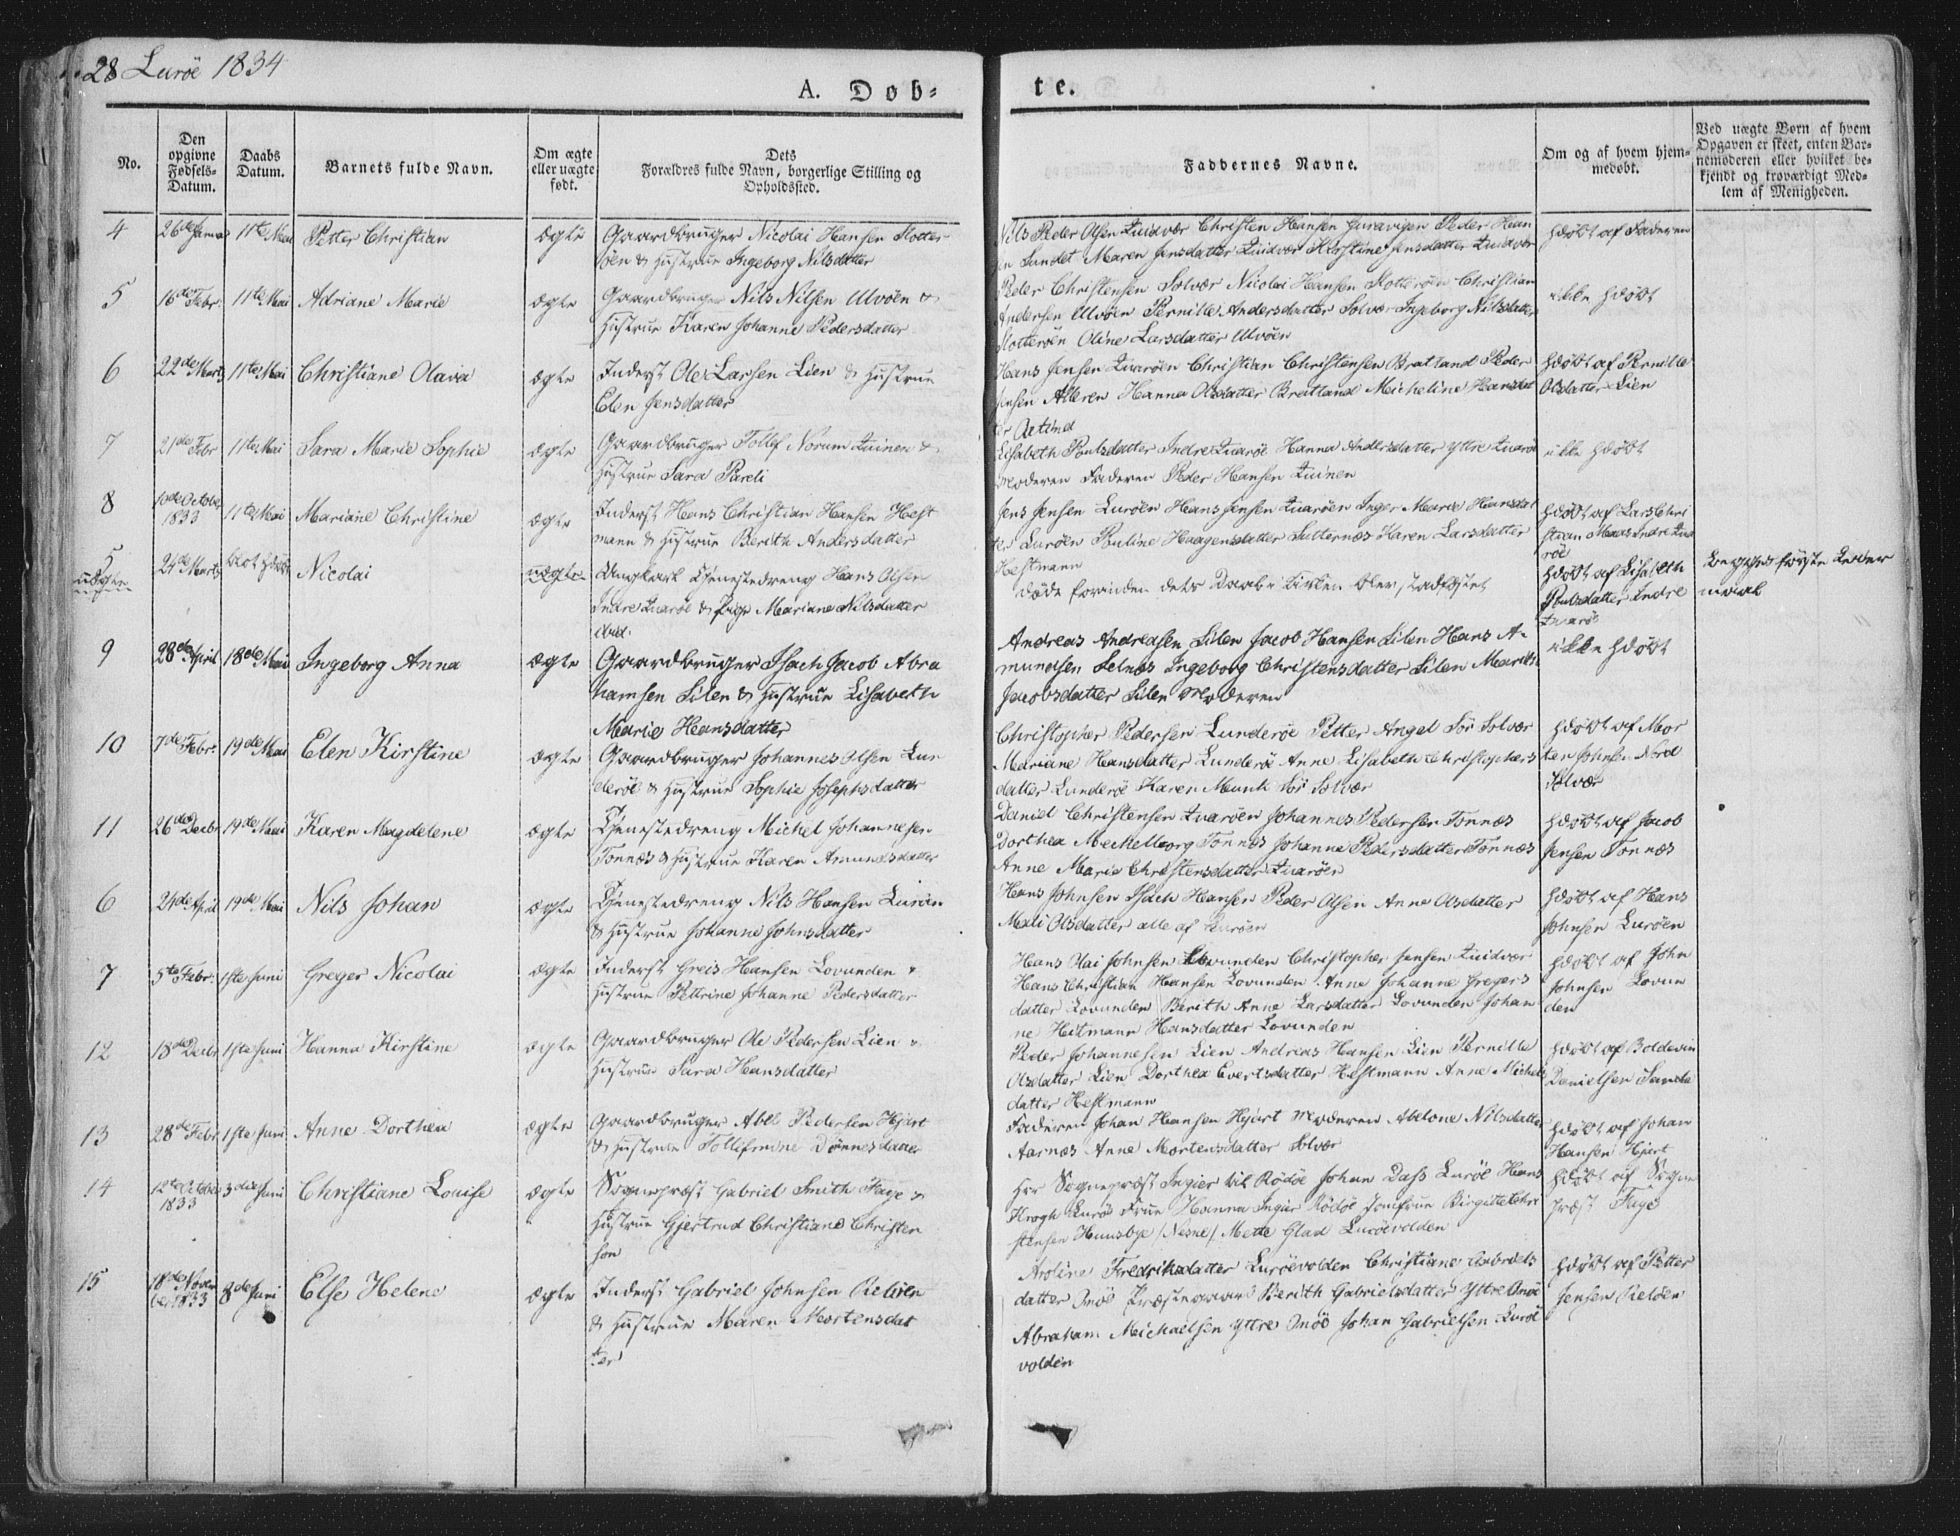 28 Lurøe 1834
A. Dob-
te.
No.
Den opgivne Fødsels-Datum.
Daabs Datum.
Barnets fulde Navn.
Om ægte eller uægte født.
Dets Forældres fulde Navn, borgerlige Stilling og Opholdssted.
Faddernes Navne.
Om og af hvem hjem-medøbt.
Ved uægte Børn af hvem Opgaven er skeet, enten Bar-nemoderen eller hvilket be-kjendt og troværdigt Med-lem af Menigheden.
4 26de Janua 11te Mai Petter Christian ægte Gaardbruger Nicolai Hansen Slotter
øen & Hustrue Ingeborg Nilsdatter
Nils Peder Olsen Qvidvær Christen Hansen Peder Han
sen Sundet Maren Jensdatter Qvidvær Kirstine Jensdatter Qvidvær
hdøbt af Faderen
5 16de Febr. 11te Mai Adriane Marie ægte Gaardbruger Nils Nilsen Ulvøen &
Hustrue Karen Johanne Pedersdatter
Peder Christensen Solvær Nicolai Hansen Slotterøen Christian
Andersen Ulvøen Pernille Andersdatter Solvær Ingeborg Nilsdatter
Slotterøen Oline Larsdatter Ulvøen
ikke hdøbt
6 22de Marts 11te Mai Christiane Olava ægte Inderst Ole Larsen Lien & Hustrue
Elen Jensdatter
Hans Jensen Qvarøen Christian Christensen Bratland Peder
Jensen Alderen Hanna Olsdatter Bratland Micheline Hansdat
ter
hdøbt af Pernille
Olsdatter Lien
7 21de Febr 11te Mai Sara Marie Sophie ægte Gaardbruger Tollef Norum Qvinen &
Hustrue Sara Pareli
Lisabeth Poulsdatter Indre Qvarøe Hanna Andersdatter Yttre Qvarøe
Moderen Faderen Peder Hansen Qvinen
ikke hdøbt
8 10de October 1833 11te Mai Mariane Christine ægte Inderst Hans Christian Hansen Hest
mann & Hustrue Berith Andersdatter
Jens Jensen Lurøen Hans Jensen Qvarøen Inger Marie Hansdat
ter Lurøen Pouline Haagensdatter Karen Larsdatter
Hestmann
hdøbt af Lars Chri
stian Maas Indre Qva
røe
5 uægte 24de Marts blot hdøbt Nicolai uægte Ungkarl Tjenestedreng Hans Olsen
Indre Qvarøe & Pige Mariane Nilsdatter
ibid.
døde forinden dets Daab i Kirken blev stadfæstet
hdøbt af Lisabeth
Poulsdatter Indre
Qvarøe
Begges første Leier
maal
9 28de April 18de Mai Ingeborg Anna ægte Gaardbruger Isach Jacob Abra
hamsen Silen & Hustrue Lisabeth
Marie Hansdatter
Andreas Andreasen Silen Jacob Hansen Silen Hans A-
mundsen Selnæs Ingeborg Christensdatter Silen
Jacobsdatter Silen Moderen
ikke hdøbt
10 7de Febr. 19de Mai Elen Kirstine ægte Gaardbruger Johannes Olsen Lun
derøe & Hustrue Sophie Josephsdatter
Christopher Pedersen Lunderøe Petter Angel Sør Solvær
Mariane Hansdatter Lunderøe Anne Lisabeth Christophers
datter Lunderøe Karen Munk Sør Solvær
hdøbt af Mor
ten Johnsen Nord
Solvær
11 26de Decbr 19de Mai Karen Magdelene ægte Tjenestedreng Michel Johannesen
Tonnæs & Hustrue Karen Amundsdatter
Daniel Christensen Qvarøen Johannes Pedersen Tonnæs
Dorthea Meckelborg Tonnæs Johanne Pedersdatter Tonnæs
Anne Marie Christensdatter Qvarøen
hdøbt af Jacob
Jensen Tonnæs
6 24de April 19de Mai Nils Johan ægte Tjenestedreng Nils Hansen Lurøen
& Hustrue Johanne Johnsdatter
Hans Johnsen Isach Hansen Peder Olsen Anne Olsdatter
Mali Olsdatter alle af Lurøen
hdøbt af Hans
Johnsen Lurøen
7 5te Febr. 1ste Juni Greger Nicolai ægte Inderst Greis Hansen Lovunden &
Hustrue Pettrine Johanne Pedersdatter
Hans Olai Johnsen Lovunden Christopher Jensen Qvidvær
Hans Christian Hansen Lovunden Anne Johanne Gregers
datter Lovunden Berith Anne Larsdatter Lovunden Johan
ne Heitmann Hansdatter Lovunden
hdøbt af John
Johnsen Lovun
den
12 18de Decbr 1ste Juni Hanna Kirstine ægte Gaardbruger Ole Pedersen Lien &
Hustrue Sara Hansdatter
Peder Johannesen Lien Andreas Hansen Lien Pernille
Olsdatter Lien Dorthea Evertsdatter Hestmann Anne Michels
datter Hestmann
hdøbt af Boldevin
Danielsen Sande
13 28de Febr 1ste Juni Anne Dorthea ægte Gaardbruger Abel Pedersen Hjart
& Hustrue Tollefmine Dønnesdatter
Faderen Johan Hansen Hjart Moderen Abelone Nilsdatter
Aarnæs Anne Mortensdatter Solvær
hdøbt af Johan
Hansen Hjart
14 12te October 1833 3die Juni Christiane Louise ægte Sognepræst Gabriel Smith Faye &
Hustrue Gjertrud Christiane Christen
sen
Hrr Sognepræst Ingier til Rødøe Johan Dass Lurøe Hans
Krogh Lurøe Frue Hanna Ingier Rødøe Jomfrue Birgitte Chri
stensen Huusbye /Nesne/ Mette Glad Lurøevolden
hdøbt af Sogne
præst Faye
15 18de Novem ber 1833 8de Juni Else Helene ægte Inderst Gabriel Johnsen Reløen
& Hustrue Maren Mortensdat
ter
Aroline Fredriksdatter Lurøevolden Christiane Gabriels
datter Onøe Præstegaard Berith Gabrielsdatter Yttre Onøe
Abraham Michaelsen Yttre Onøe Johan Gabrielsen Lurøe
volden
hdøbt af Petter
Jensen Reløen